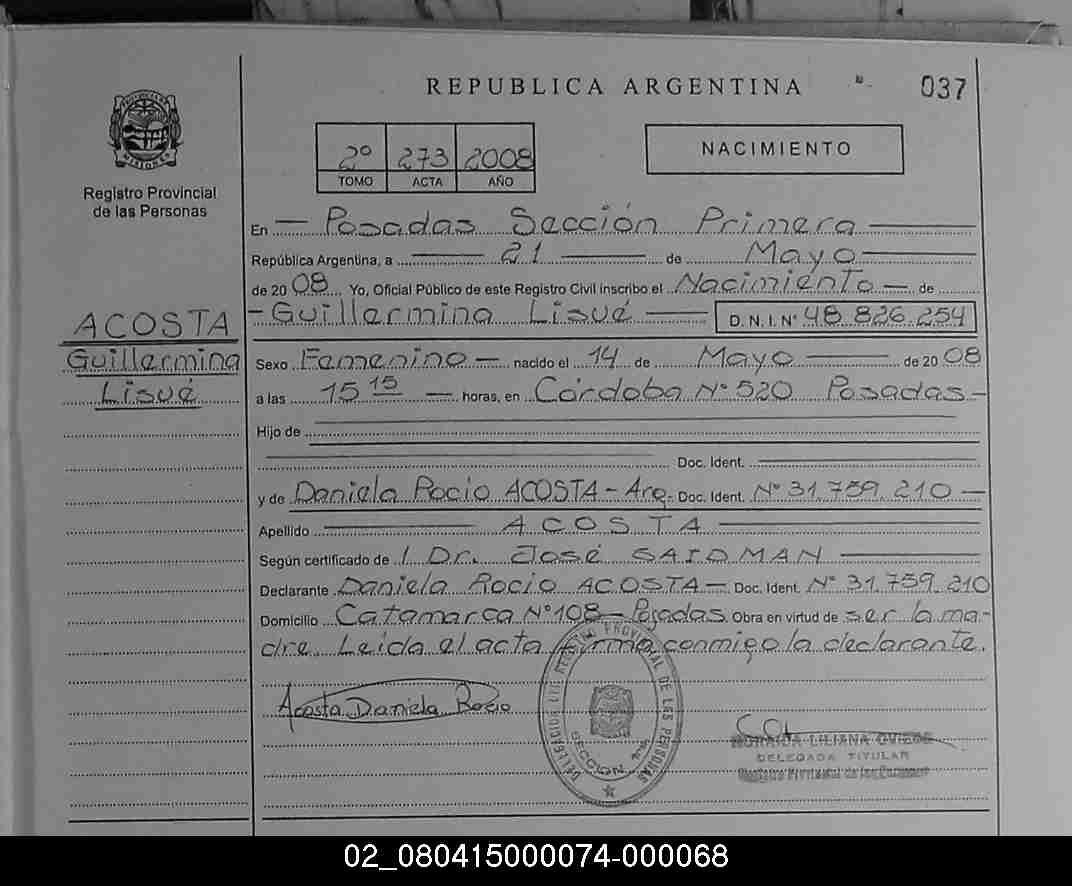 REPUBLICA ARGENTINA
037
PROVINCIA DE MISIONES
Registro Provincial
de las Personas
2º 273 2008
TOMO ACTA AÑO
NACIMIENTO
En — Posadas Sección Primera —
República Argentina, a — 21 — de Mayo —
de 2008 Yo, Oficial Público de este Registro Civil inscribo el Nacimiento — de
- Guillermina Lisué — D.N.I. Nº 48 826 254
ACOSTA
Guillermina
Lisué
Sexo Femenino — nacido el 14 de Mayo — de 2008
a las 15 15 — horas, en Córdoba Nº 520 Posadas -
Hijo de
Doc. Ident.
y de Daniela Rocio ACOSTA - Arg. Doc. Ident. Nº 31.759.210 —
Apellido — ACOSTA —
Según certificado de l Dr. José SAIDMAN —
Declarante Daniela Rocio ACOSTA — Doc. Ident. Nº 31.759.210
Domicilio Catamarca Nº 108 - Posadas Obra en virtud de ser la ma-
dre. Leida el acta firma conmigo la declarante.
Acosta Daniela Rocio
DELEGACION CIVIL REGISTRO PROVINCIAL DE LAS PERSONAS
SECCION
LILIANA OVIEDO
DELEGADA TITULAR
Registro Provincial de las Personas
02_080415000074-000068